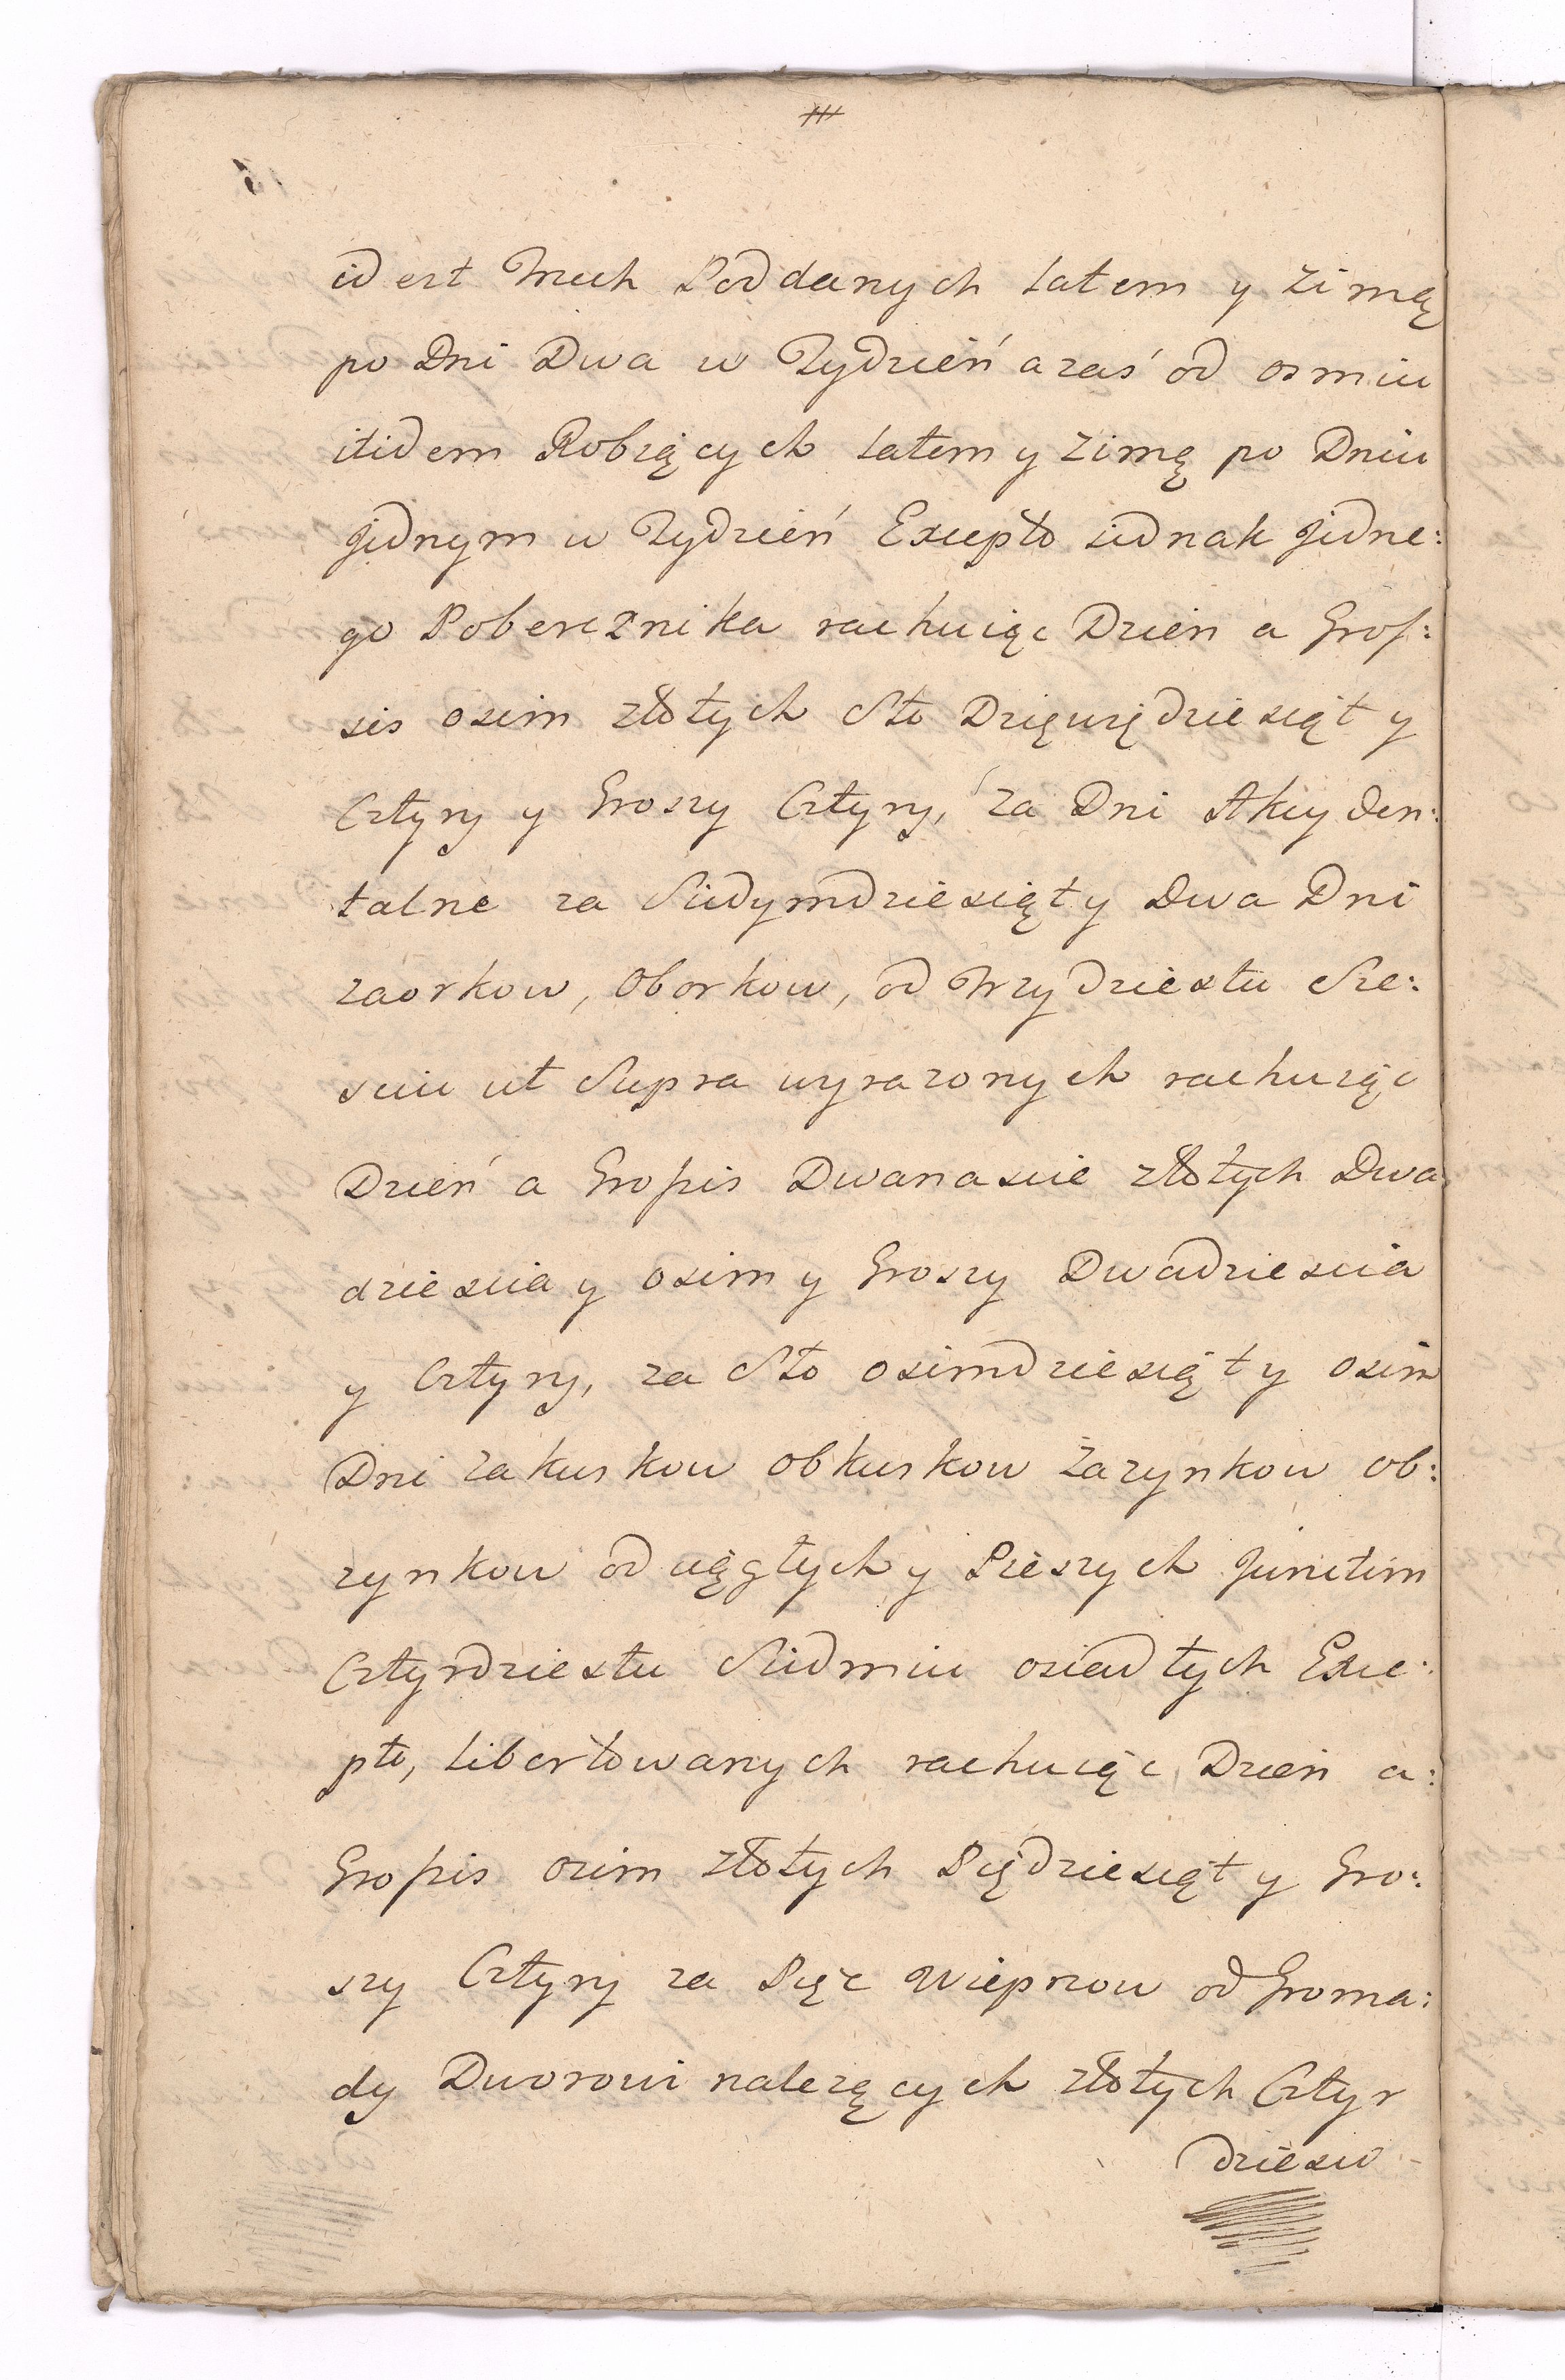 id est trzech Poddanych latem y zimą
po Dni Dwa w Tydzień a zaś od osmiu
itidem Robiących latem y zimą po Dniu
jednym w Tydzień Excepto iednak jedne:
go Pobereznika rachuiąc Dzień a Gros:
sis osim złotych Sto Dzięwiędziesiąt y
Cztyry y Groszy Cztyry, za Dni Akcyden:
talne za Siedymdziesiąt y Dwa Dni
zaorkow, Oborkow, od trzydziestu Sze:
sciu ut Supra wyrazonych rachuiąc
Dzień a Grossis Dwanascie złotych Dwa
dziescia y osim y Groszy Dwadziescia
y Cztyry, za Sto osimdziesiąt y osim
Dni zakuskow obkuskow zazynkow ob:
zynkow od ciągłych y Pieszych junctim
Cztyrdziestu Siedmiu osiadłych Exce:
pto, libertowanych rachuiąc Dzień a:
Grossis osim złotych Piędziesiąt y Gro:
szy Cztyry za Pięc wieprzow od Groma:
dy Dworowi nalezących złotych Cztyr
dziesci